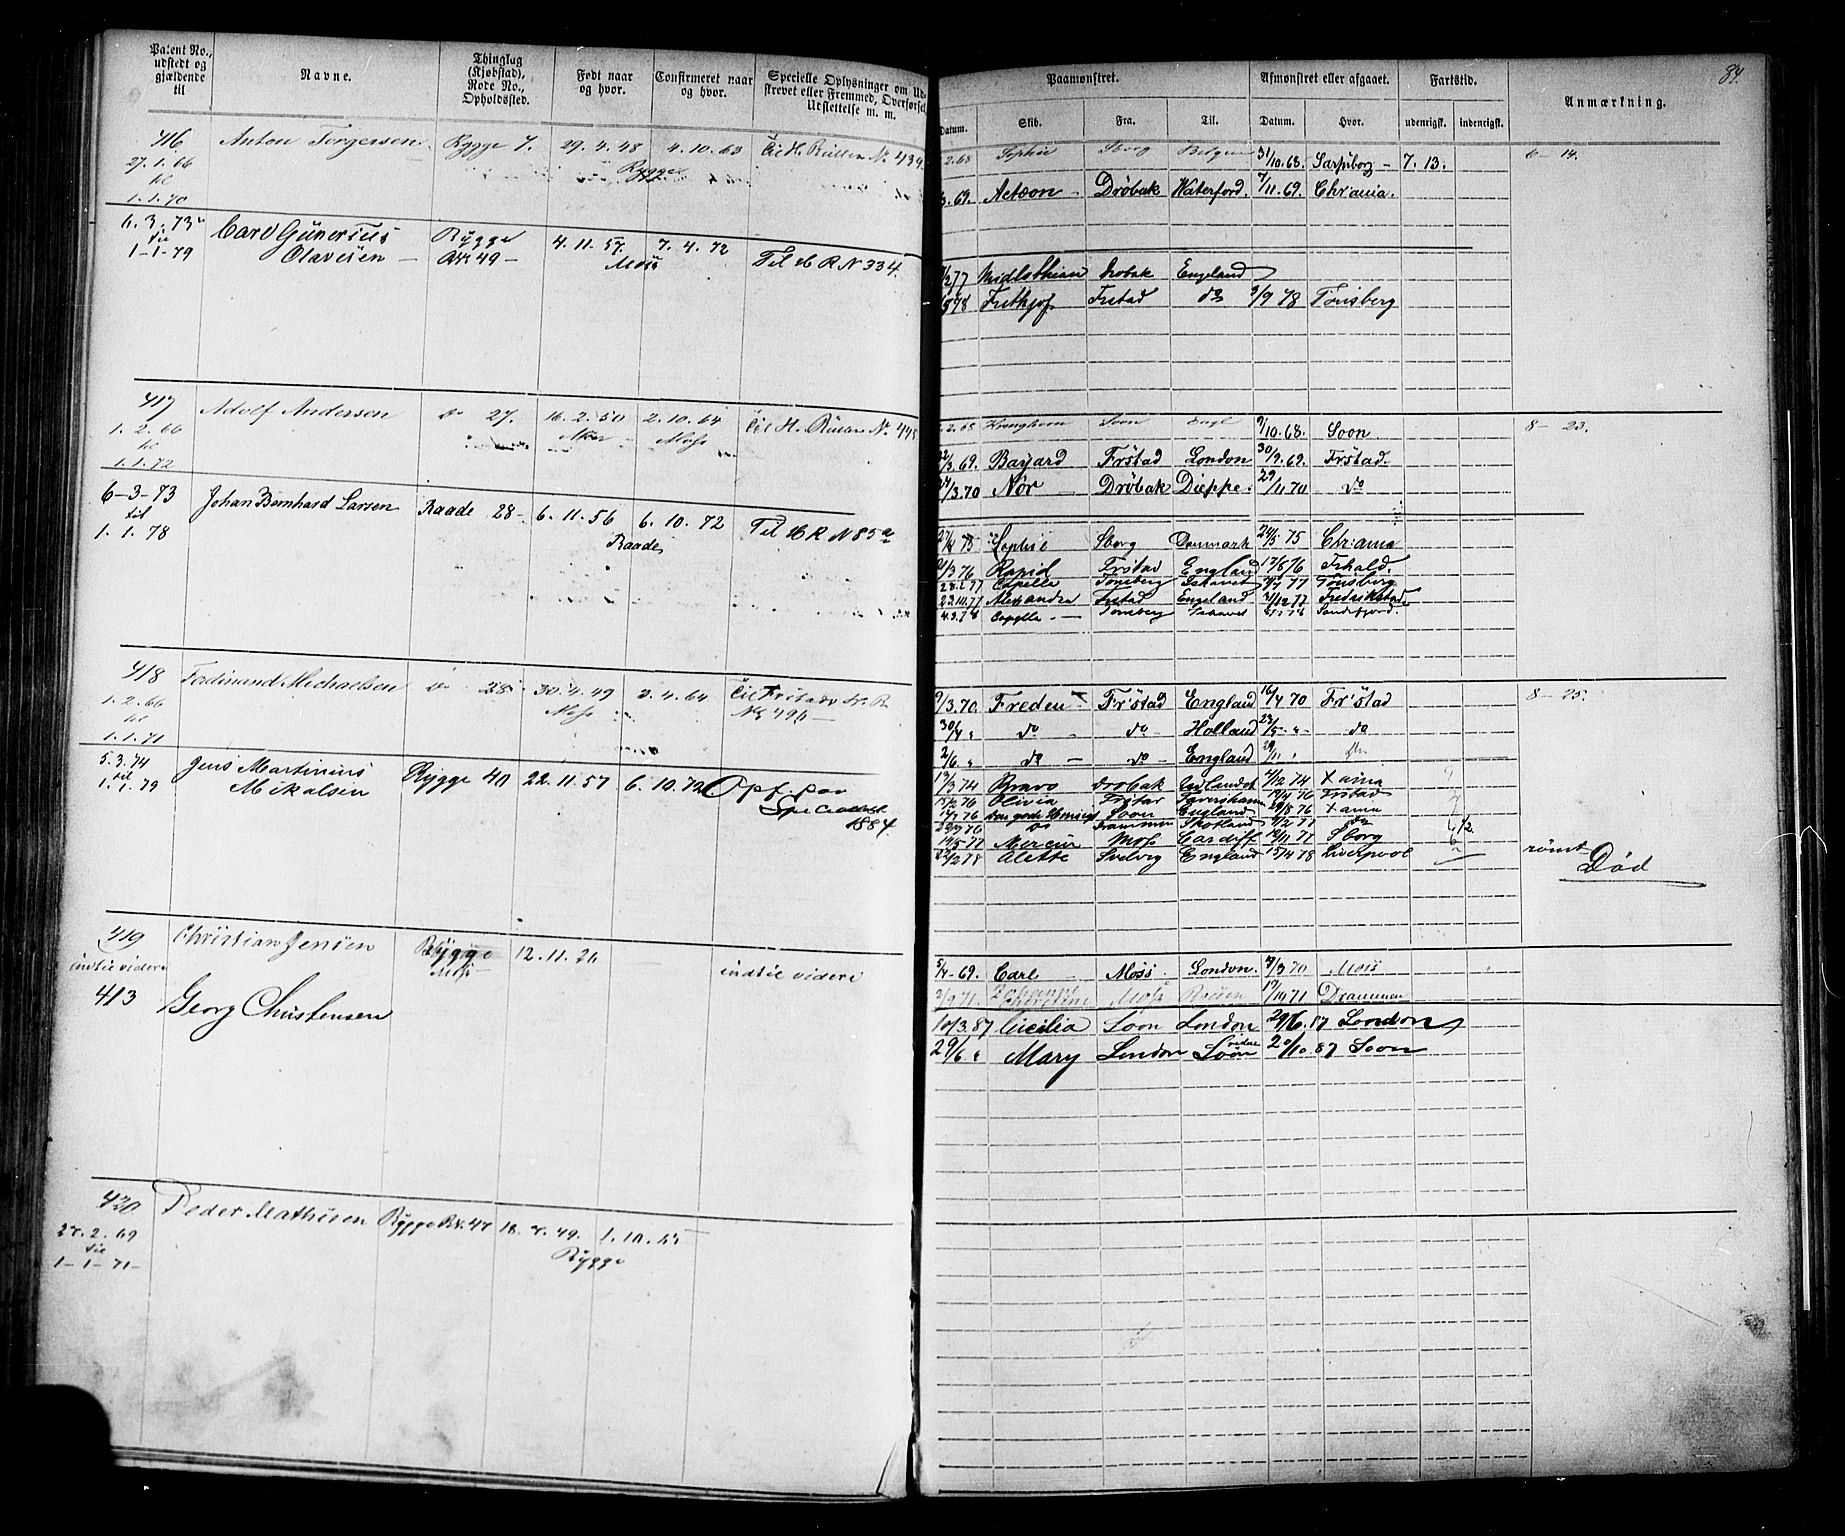 Patent No., udstedt og gjældende til
Navne.
Thinglag (Kjøbstad), Rode No., Opholdssted.
Født naar og hvor.
Confirmeret naar og hvor.
Specielle Oplysninger om Udskrevet eller Fremmed, Overførsel, Udslettelse m. m.
416 Anton Torgersen Rygge 7. 29. 4. 48 4. 10. 63 Til H. Rullen No 439
27. 1. 66 Rygge
til
1. 1. 70
6. 3. 73 Carl Gunerius Rygge 4. 11. 57. 7. 4. 72 Til H R N 334
til Olavesen 49 Moss
1-1-79
417 Adolf Andersen do 27. 16. 2. 50 2. 10. 64 Til H. Rullen No
1. 2. 66 Aker Moss
til
1. 1. 72
6-3-73 Johan Bernhard Larsen Raade 28- 6. 11. 56 6. 10. 72 Til H R N 85
til Raade
1. 1. 78
418 Ferdinand Michaelsen do 28 30. 4. 49 3. 4. 64 Til Frstad
1. 2. 66 Moss No 496
til
1. 1. 71
5. 3. 74 Jens Martinius Rygge 40 22. 11. 57 6. 10. 72 Opf. paa
til Mikalsen
1. 1. 79 1884
419 Christian Jensen Rygge 12. 11. 26
indtil videre Moss indtil videre
413 Georg Christensen
420 Peder Mathisen Rygge Rd. 47 18. 49. 1. 10. 65
2. 69 Rygge
til
1-1-71-
84.
Paamønstret. Afmønstret eller afgaaet. Fartstid. Anmærkning.
Datum. Skib. Fra. Til. Datum. Hvor. udenrigsk. indenrigsk.
2. 68 Sophie Sborg Belgien 31/10. 68. Sarpsborg - 7. 13. 6-14.
3. 69. Actæon Drøbak Waterford. 7/11. 69. Chr:ania.
Midlothian Drøbak England
78 Frithjof Frstad do 3/9 78 Tønsberg
2. 68 Kronghorn Soon Engl 9/10. 68. Soon 8-23.
/3. 69. Bayard Frstad London 30/9. 69. Frstad.
/3. 70 Nør Drøbak Dieppe. 29/11 70 do
Sophie Sborg Danmark 24/5 75 Chr:ania
/3 76 Rapid Frstad England 17/8 76 Frhald.
77 Capella Tønsberg Ishavet /7 77 Tønsberg
22. 10. 77 Alexandra Frstad England /12 77 Fredrikstad
4. 3. 78 Capella Tønsberg Ishavet Sandefjord.
9/3. 70. Freden Fr:stad England 16/4 70 Fr:stad 8-25.
30/4 " do - do Holland 23/5. " do
2/6 " do - do England 29/11 "
13/3 74 Bravo Drøbak 4/12 74 Xania
15/2 76 Olivia Frstad 19/4 76 Frstad
Soon England 29/8 76 Xania
do Drammen Skotland 2/2 77 do
14/5 77 Mercur Moss Cardiff /11 77 Sborg
/2 78 Alette Svelvig England 15/4 78 Liverpool rømt
Død
5/4-69. Carl Moss London. /3 70 Moss
2/9 71. Moss Rouen 17/10 71 Drammen
10/3. 87 Cicilia Soon London 29/6. 87 London
29/6 " Mary London Soon 20/10. 87 Soon